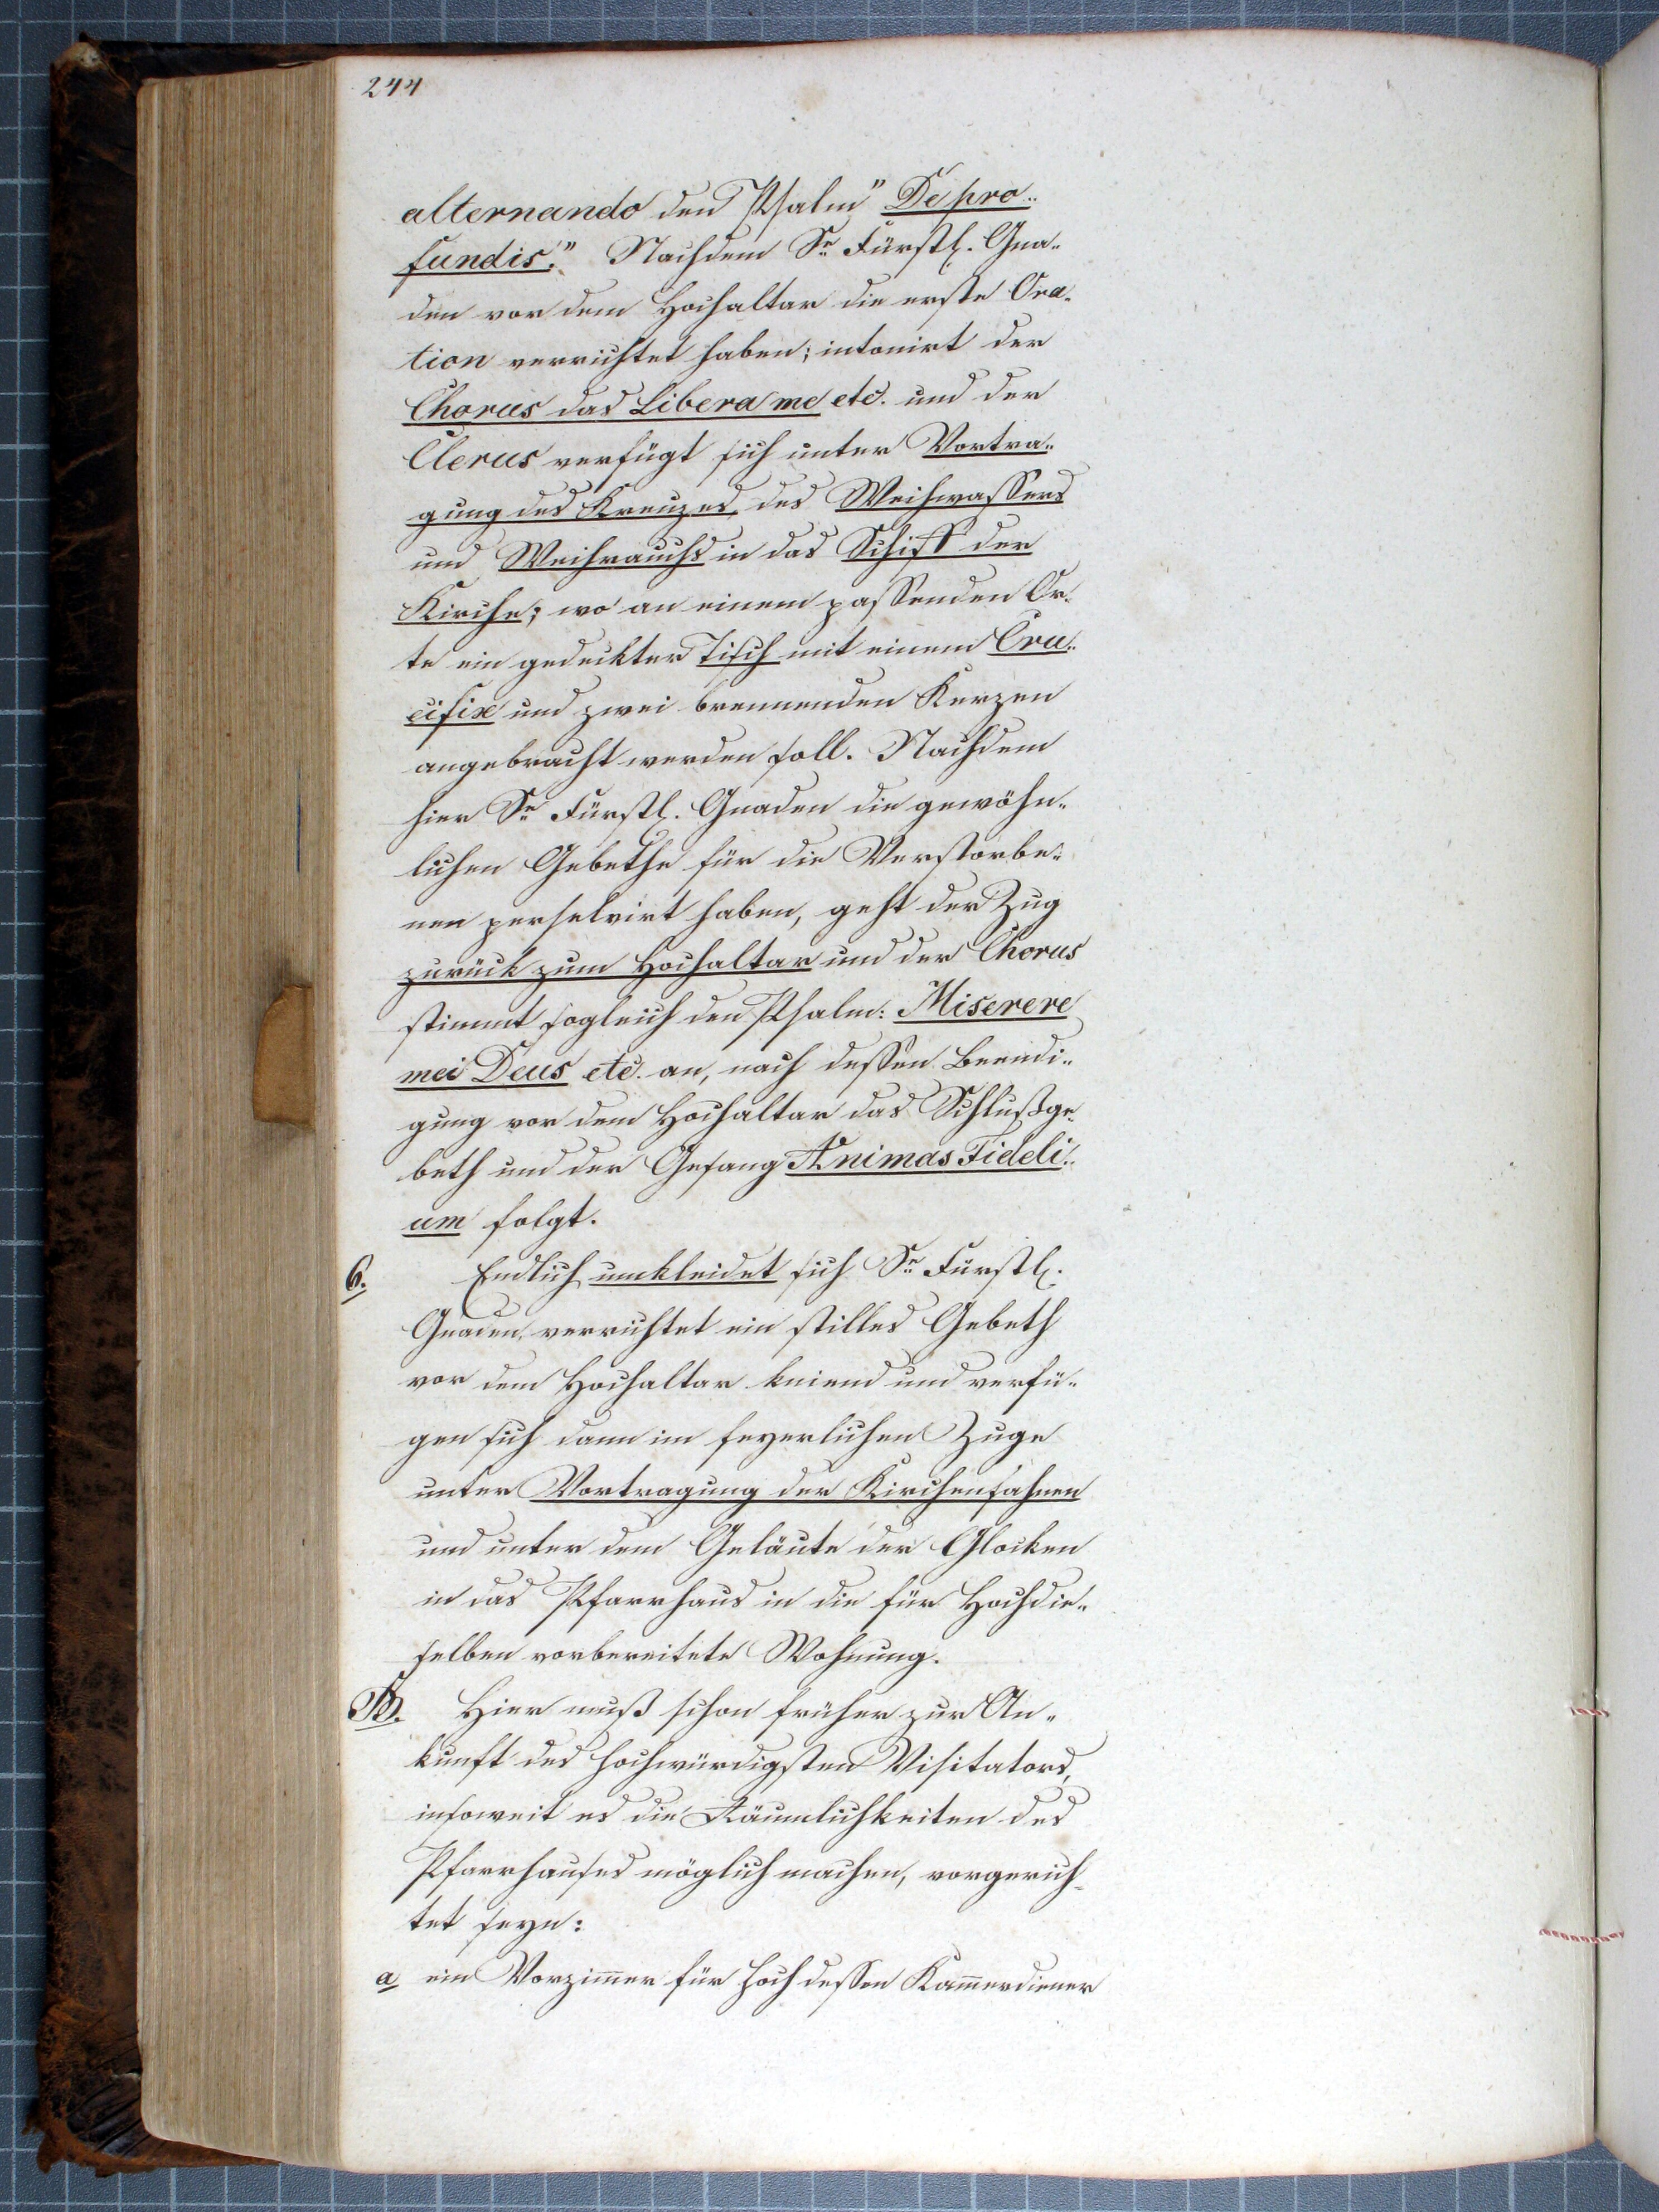 244
alternando den Psalm" De pro„
fundis." Nachdem Sr Fürstl. Gna„
den vor dem Hochaltar die erste Ora„
tion verrichtet haben; intonirt der
Chorus das Libera me etc. und der
Clerus verfügt sich unter Vortra„
gung des Kreuzes, des Weihwassers
und Weihrauchs in das Schiff der
Kirche; wo an einem passenden Or„
te ein gedeckter Tisch mit einem Cru„
cifix und zwei brennenden Kerzen
angebracht werden soll. Nachdem
hier Sr Fürstl. Gnaden die gewöhn„
lichen Gebethe für die Verstorbe„
nen persolvirt haben, geht der Zug
zurück zum Hochaltar und der Chorus
stimmt sogleich den Psalm: Miserere
mei Deus etc. an, nach dessen Beendi„
gung vor dem Hochaltar das Schlußge„
beth und der Gesang Animas Fideli„
um folgt.
6. Endlich umkleidet sich Sr Fürstl.
Gnaden, verrichtet ein stilles Gebeth
vor dem Hochaltar kniend und verfü„
gen sich dann im feyerlichen Zuge
unter Vortragung der Kirchenfahnen
und unter dem Geläute der Glocken
in das Pfarrhaus in die für Hochdie„
selben vorbereitete Wohnung.
B. Hier muß schon früher zur An„
kunft des hochwürdigsten Visitators,
insoweit es die Räumlichkeiten des
Pfarrhauses möglich machen, vorgerich„
tet seyn:
a ein Vorzimer für hochdessen Kamerdiener